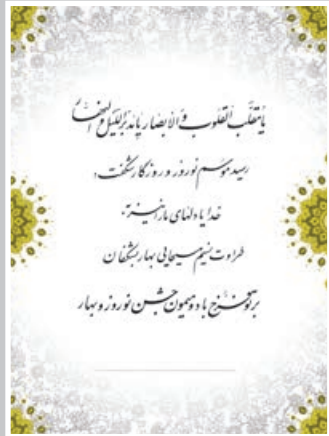 یا مقلب القلوب و الابصار یا مدبر اللیل و النهار
رسید موسم نوروز و روزگار شگفت،
خدایا دلهای ما را نیز،
طراوت نسیم مسیحایی بهار بشکفان
بر تو فرخ باد و میمون جشن نوروز و بهار